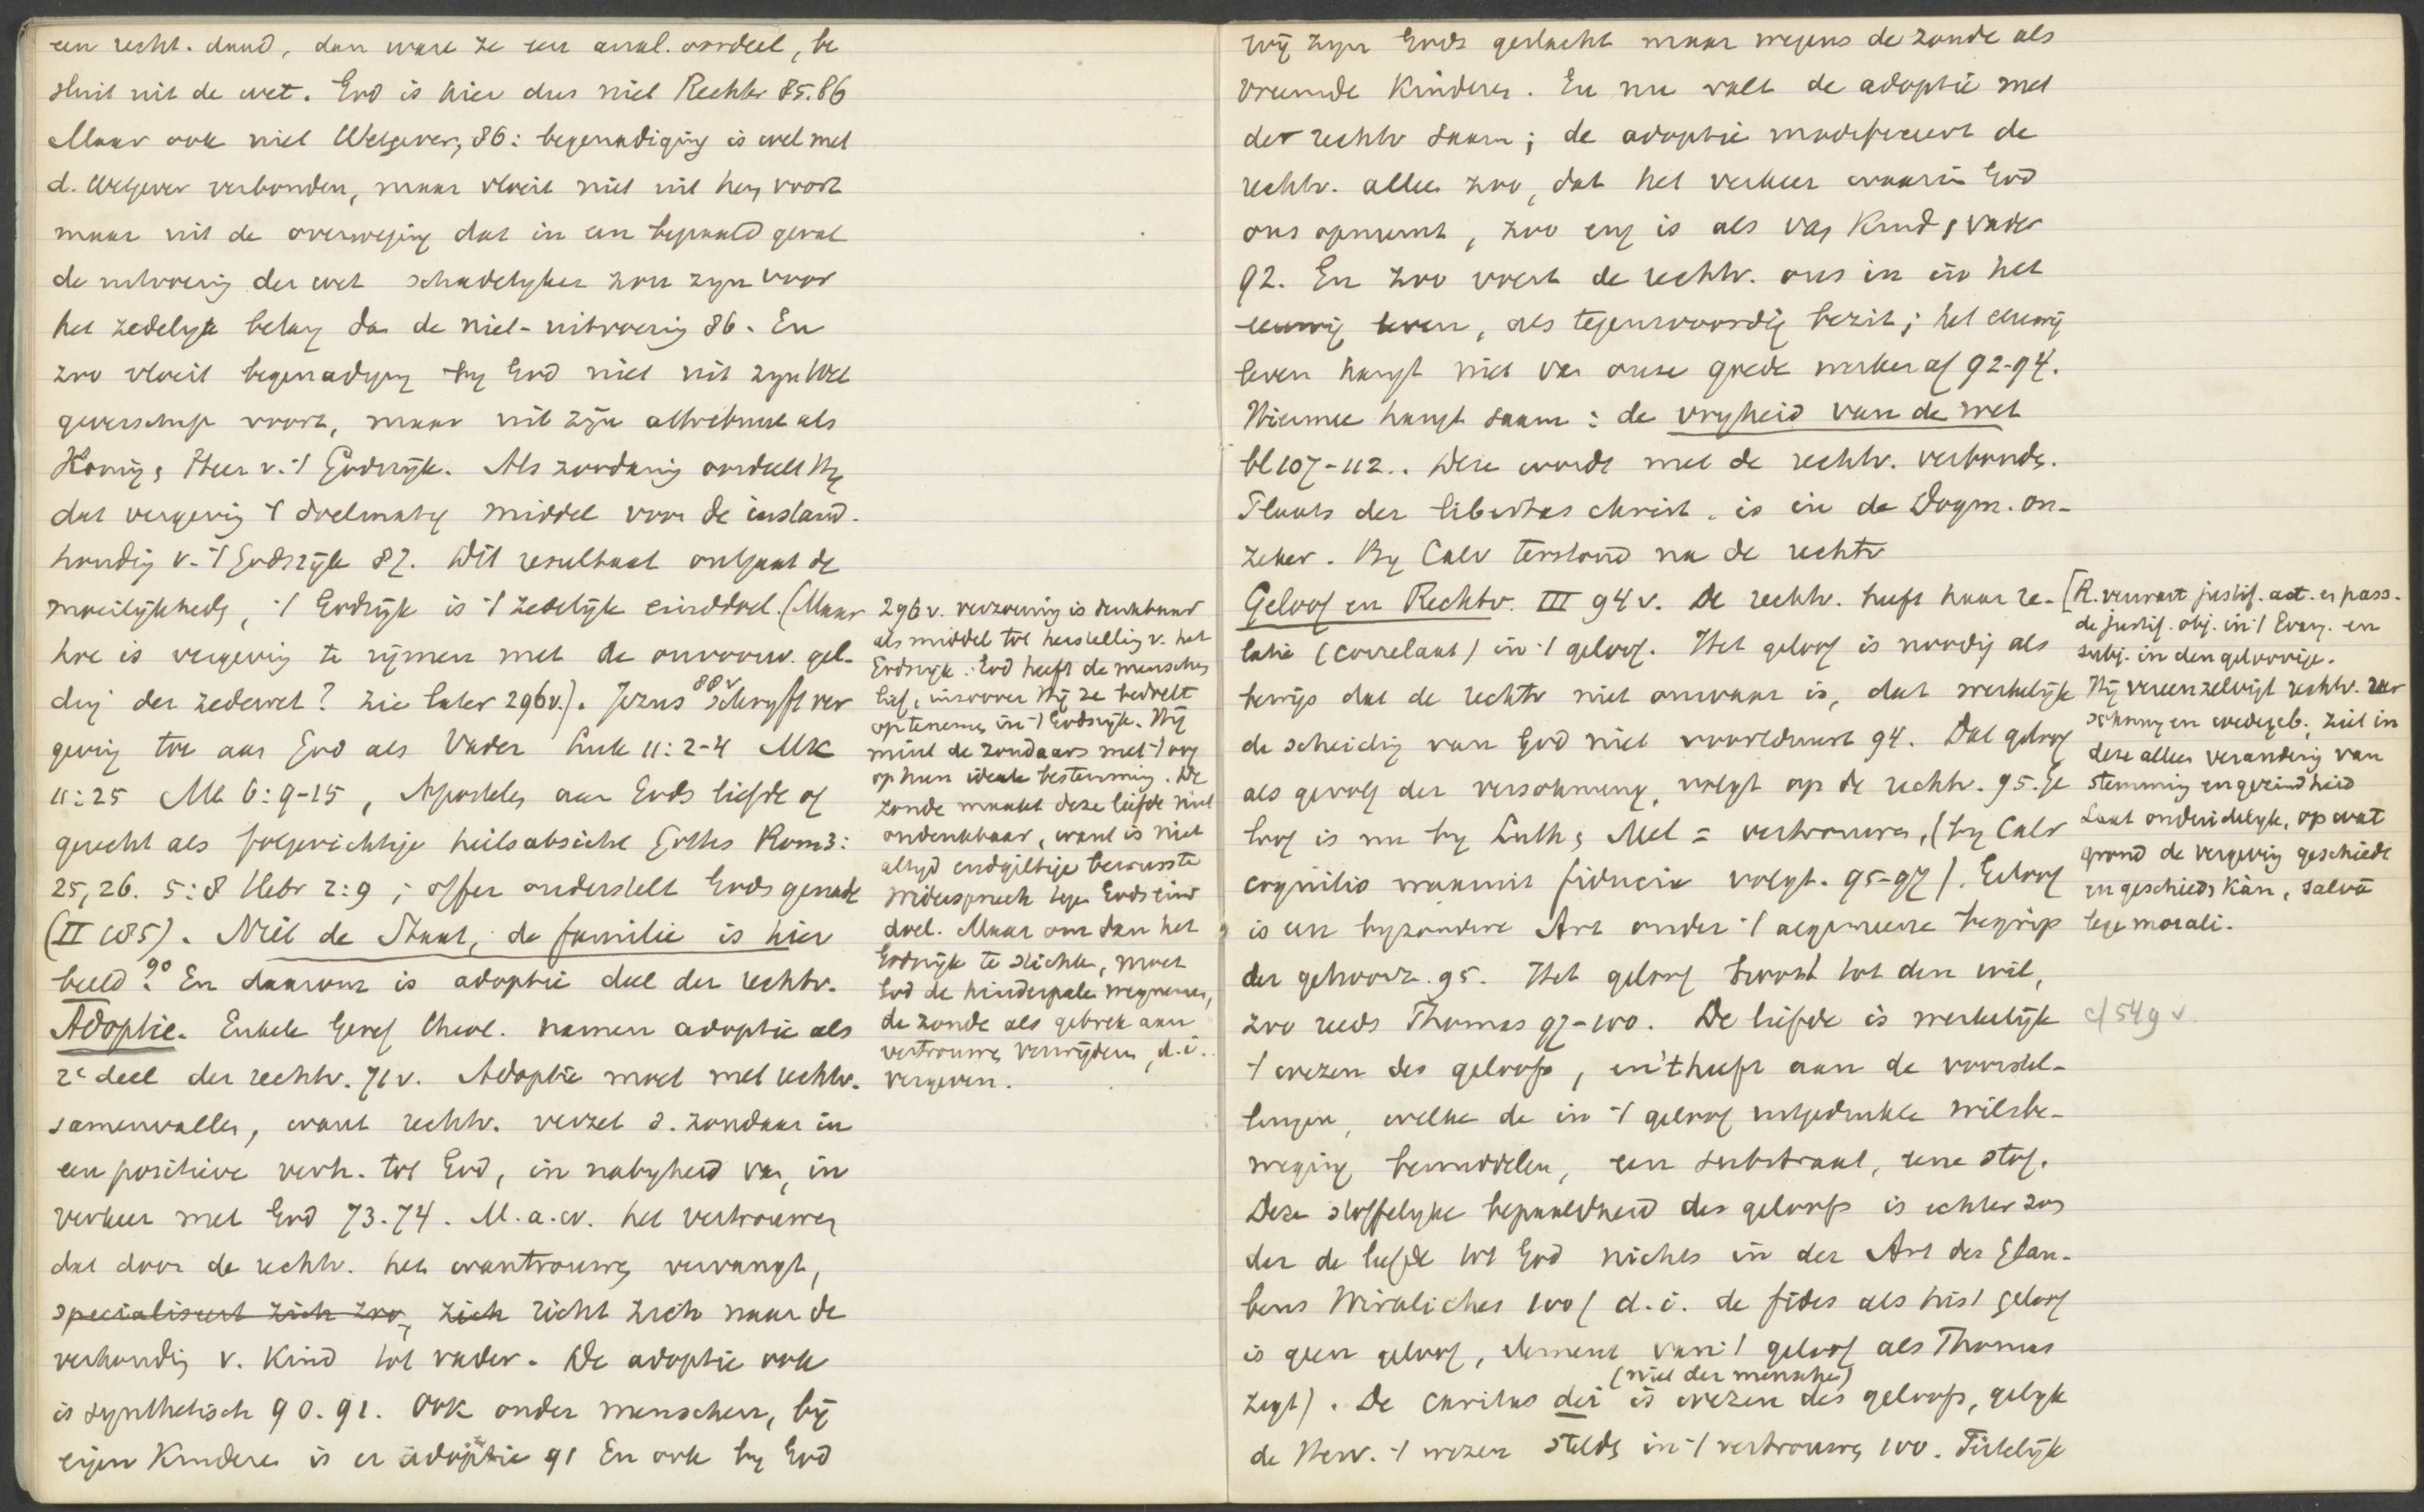 een recht. daad, dan ware ze een anal. oordeel, be
sluit uit de wet. God is hier dus niet Rechter 85.86
Maar ook niet Wetgever, 86: begenadiging is wel met
d. Wetgever verbonden, maar vloeit niet uit hem voort
maar uit de overweging dat in een bepaald geval
de uitvoering der wet schadelyker zou zyn voor
het zedelyk belang dan de niet-uitvoering 86. En
zoo vloeit begenadiging by God niet uit zyn Wet
geverschap voort, maar uit zijn attribuut als
Koning, Heer v. 't Godsrijk. Als zoodanig oordeelt Hy
dat vergeving 't doelmatig middel voor de instand-
houding v. 't Godsrijk 87. Dit resultaat ontgaat de
moeilijkheid, 't Godsrijk is 't zedelijk einddoel. (Maar
hoe is vergeving te rijmen met de onvoorw. gel-
ding der zedewet? zie later 296v.). Jezus 88v schryft ver
geving toe aan God als Vader Luk 11:2-4 Mk
11:25 Mt 6:9-15, Apostelen aan Gods liefde of
gerecht als folgerichtige heilsabsicht Gottes Rom 3:
25,26. 5:8 Hebr 2:9; offer onderstelt Gods genade
(II 185). Niet de Staat, de familie is hier
beeld 90. En daarom is adoptie deel der rechtv.
Adoptie. Enkele Geref theol. namen adoptie als
2e deel der rechtv. 71v. Adoptie moet met rechtv.
samenvallen, want rechtv. verzet d. zondaar in
een positieve verh. tot God, in nabyheid van, in
verkeer met God 73.74. M.a.w. het vertrouwen
dat door de rechtv. het wantrouwen vervangt,
specialiseert zich zoo, zich richt zich naar de
verhouding v. Kind tot vader. De adoptie ook
is synthetisch 90.91. Ook onder menschen, bij
eigen Kinderen is er adoptie 91 En ook by God
296v. verzoening is denkbaar
als middel tot herstelling v. het
Godsryk. God heeft de menschen
lief, insoover Hij ze bedoelt
op te nemen in 't Godsryk. Hij
mint de zondaars met 't oog
op hun ideale bestemming. De
zonde maakt deze liefde niet
ondenkbaar, want is niet
altyd endgiltige bewusste
Widerspruch tegen Gods eind
doel. Maar om dan het
Godsrijk te stichten, moet
God de hinderpalen wegnemen,
de zonde als gebrek aan
vertrouwen verwijderen, d.i.
vergeven.
wij zyn Gods geslacht maar wegens de zonde als
vreemde Kinderen. En nu valt de adoptie met
der rechtv saam; de adoptie modificeert de
rechtv. alleen zoo, dat het verkeer waarin God
ons opneemt, zoo eng is als van Kind, vader
92. En zoo voert de rechtv. ons in in het
eeuwig leven, als tegenwoordig bezit; het eeuwig
leven hangt niet van onze goede werken af 92-94.
Hiermee hangt saam: de vryheid van de wet
bl 107-112.. Deze wordt met de rechtv. verbonden.
Plaats der libertas christ. is in de Dogm. on-
zeker. By Calv terstond na de rechtv
Geloof en Rechtv. III 94v. De rechtv. heeft haar re-
latie (correlaat) in 't geloof. Het geloof is noodig als
bewijs dat de rechtv niet onwaar is, dat werkelijk
de scheiding van God niet voortduurt 94. Dat geloof
als gevolg der versöhnung, volgt op de rechtv. 95. Ge
loof is nu by Luth, Mel = vertrouwen, (by Calv
cognitio waaruit fiducia volgt. 95-97). Geloof
is een byzondere Art onder 't algemeene begrip
der gehoorz. 95. Het geloof hoort tot den wil,
zoo reeds Thomas 97-100. De liefde is werkelijk
't wezen des geloofs, en 't heeft aan de voorstel-
lingen, welke de in 't geloof uitgedrukte wilsbe-
weging bemiddelen, een substraat, eene stof.
Deze stoffelyke bepaaldheid des geloofs is echter zon
der de liefde tot God nichts in der Art des Glau-
bens Wirkliches 100 (d.i. de fides als hist geloof
is geen geloof, element van 't geloof als Thomas
zegt). De caritas dei (niet der menschen) is wezen des geloofs, gelijk
de Herv. 't wezen stelde in 't vertrouwen 100. Feitelijk
[R. verwart justif. act. en pass.
de justif. obj. in 't Evang. en
subj. in den geloovige.
Hij vereenzelvigt rechtv. ver
söhnung en wedergeb., ziet in
deze alleen verandering van
stemming en gezindheid
Laat onduidelyk, op wat
grond de vergeving geschiedt
en geschieden kàn, salvâ
lege morali.
cf 549v